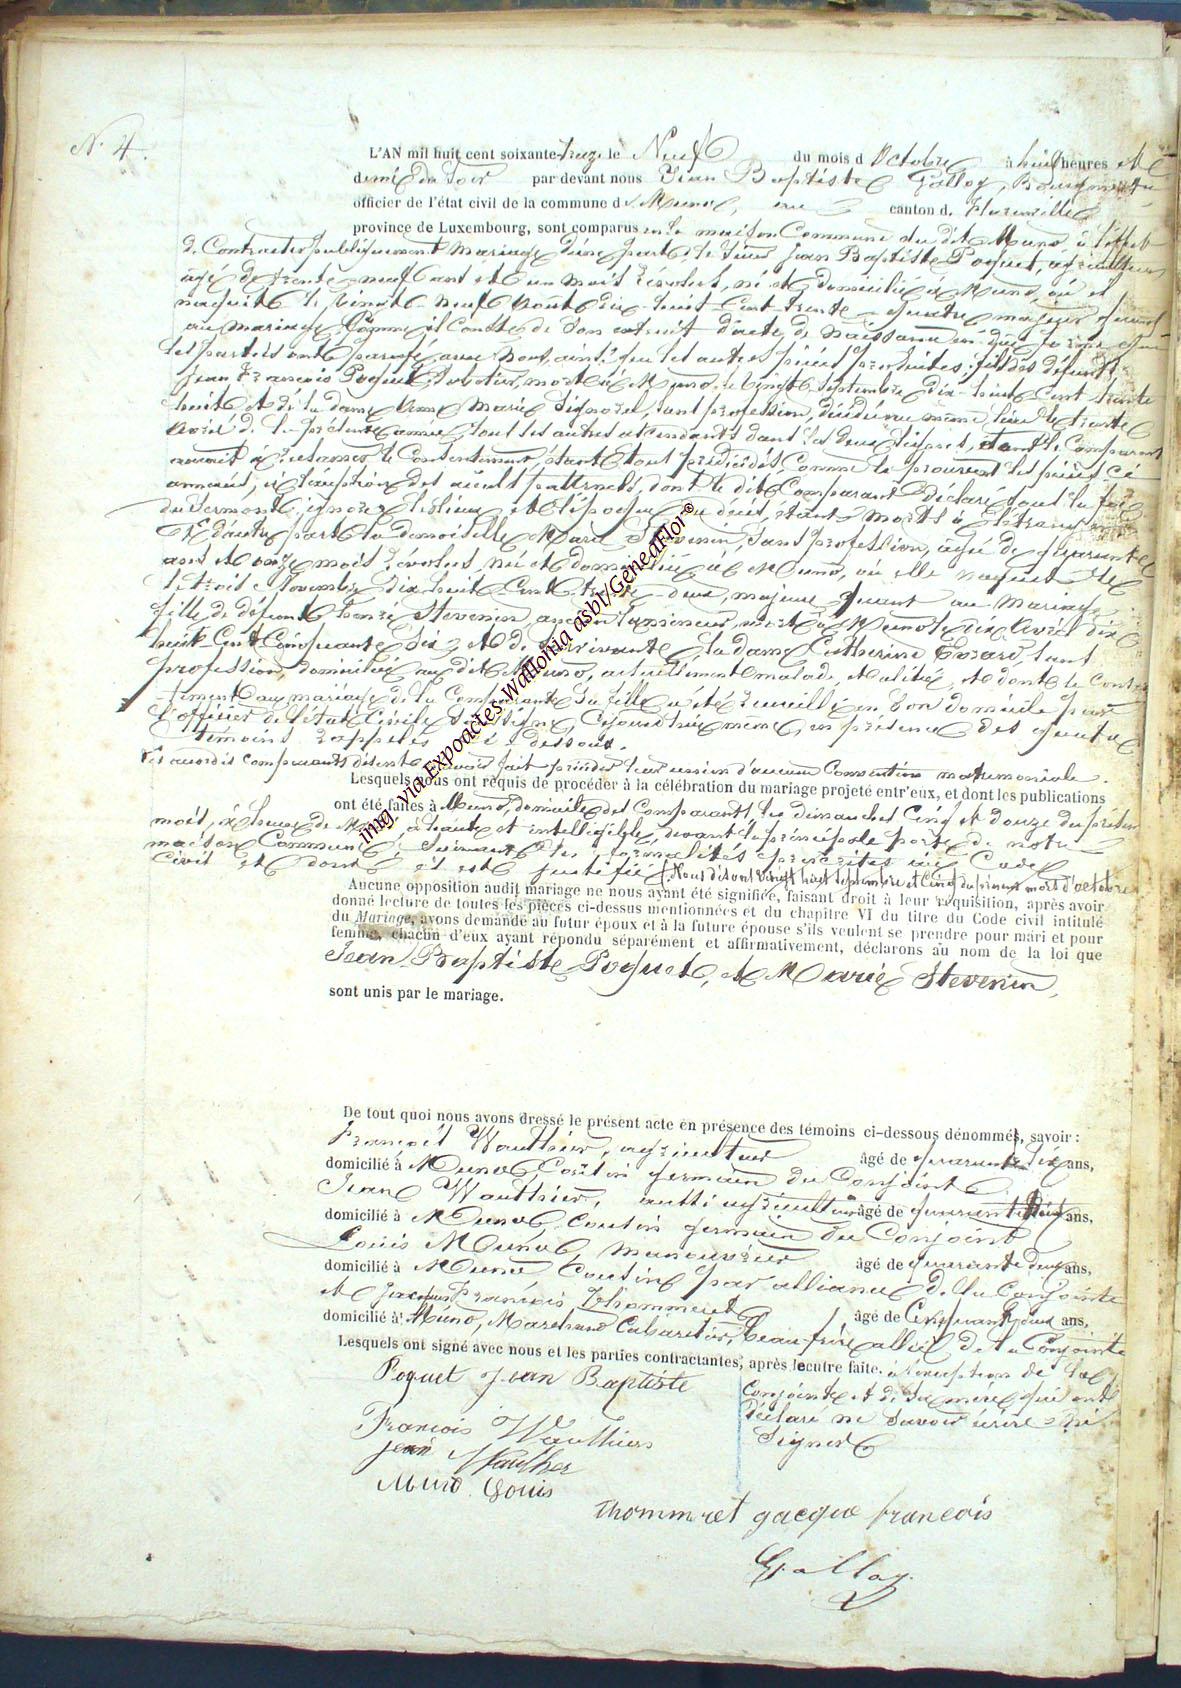 N. 4.
L'AN mil huit cent soixante-treize le Neuf du mois d'Octobre à huit heures et
demie du soir par devant nous Jean Baptiste Galloy, Bourgmestre
officier de l'état civil de la commune de Muno, canton de Florenville
province de Luxembourg, sont comparus en la maison Commune du dit Muno à l'effet
de Contracter publiquement Mariage d'une part, le Sieur Jean Baptiste Poquet, agriculteur
âgé de trente-neuf ans et un mois révolus, né et domicilié à Muno, où il
naquit le vingt-neuf Août dix-huit-Cent-trente-quatre majeur quant
au mariage Comme il Conste de son extrait d'acte de Naissance
les parties ont paraphé avec Nous, ainsi que les autres pièces produites; fils des défunts
Jean François Poquet, mort à Muno le vingt Septembre dix-huit Cent trente
huit et de la dame Anne Marie Signorel, sans profession, décédée au même lieu le trente
Avril de la présente année, tous les autres ascendants dans les deux lignes, dont le Comparant
aurait à réclamer le Consentement étant tous prédécédés Comme le prouvent les pièces ci
annexées, à l'exception des aïeuls paternels, dont le dit Comparant déclare sous la foi
du Serment ignorer le lieu et l'époque du décès, étant morts à l'étranger
Et d'autre part la demoiselle Marie Stevenin, sans profession, âgée de quarante
ans et onze mois révolus, née et domiciliée à Muno, où elle naquit le
le trois Novembre dix huit-Cent-trente-deux, majeure quant au mariage
fille de défunt Henri Stevenin ancien mort à Muno le dix Avril dix
huit-Cent Cinquante Six et de survivante la dame Catherine Evrard, sans
profession, domiciliée au dit Muno, actuellement malade, et alitée, et dont le Consen
tement au mariage de la Comparante sa fille a été recueilli en Son domicile par
l'officier de l'état Civil Soussigné, Cejourd'hui même, en présence des quatre
témoins rappelés ci-dessous.
Les ausdits comparants disent avoir fait précéder leur union d'aucune Convention matrimoniale.
Lesquels nous ont requis de procéder à la célébration du mariage projeté entr'eux, et dont les publications
ont été faites à Muno, domicile des Comparants, les dimanches Cinq et douze du présent
mois, à l'heure de Midi, à haute et intelligible devant la principale porte de notre
maison Commune, suivant les formalités prescrites au Code
Civil et dont il est justifié Nous disons vingt huit Septembre et Cinq du présent mois d'octobre
Aucune opposition audit mariage ne nous ayant été signifiée, faisant droit à leur réquisition, après avoir
donné lecture de toutes les pièces ci-dessus mentionnées et du chapitre VI du titre du Code civil intitulé
du Mariage, avons demandé au futur époux et à la future épouse s'ils veulent se prendre pour mari et pour
femme, chacun d'eux ayant répondu séparément et affirmativement, déclarons au nom de la loi que
Jean Baptiste Poquet, et Marie Stevenin,
sont unis par le mariage.
De tout quoi nous avons dressé le présent acte en présence des témoins ci-dessous dénommés, savoir :
François Wauthier, agriculteur âgé de quarante-six ans,
domicilié à Muno Cousin germain du Conjoint
Jean Wauthier, aussi agriculteur âgé de quarante ans,
domicilié à Muno, Cousin germain du Conjoint
Louis Muno, manouvrier âgé de quarante deux ans,
domicilié à Muno Cousin par alliance de la Conjointe
et Jacques François Thommeret âgé de Cinquante deux ans,
domicilié à Muno, Marchand Cabaretier, beau-frère allié de la Conjointe
Lesquels ont signé avec nous et les parties contractantes, après lecutre faite. à l'exception de la
Conjointe et de Sa mère qui ont
déclaré ne Savoir écrire ni
Signer
Poquet Jean Baptiste
François Wauthier
Jean Wauthier
Muno Louis
Thommeret gacque francois
Galloy
img. via Expoactes-Wallonia asbl/GeneaFlor©